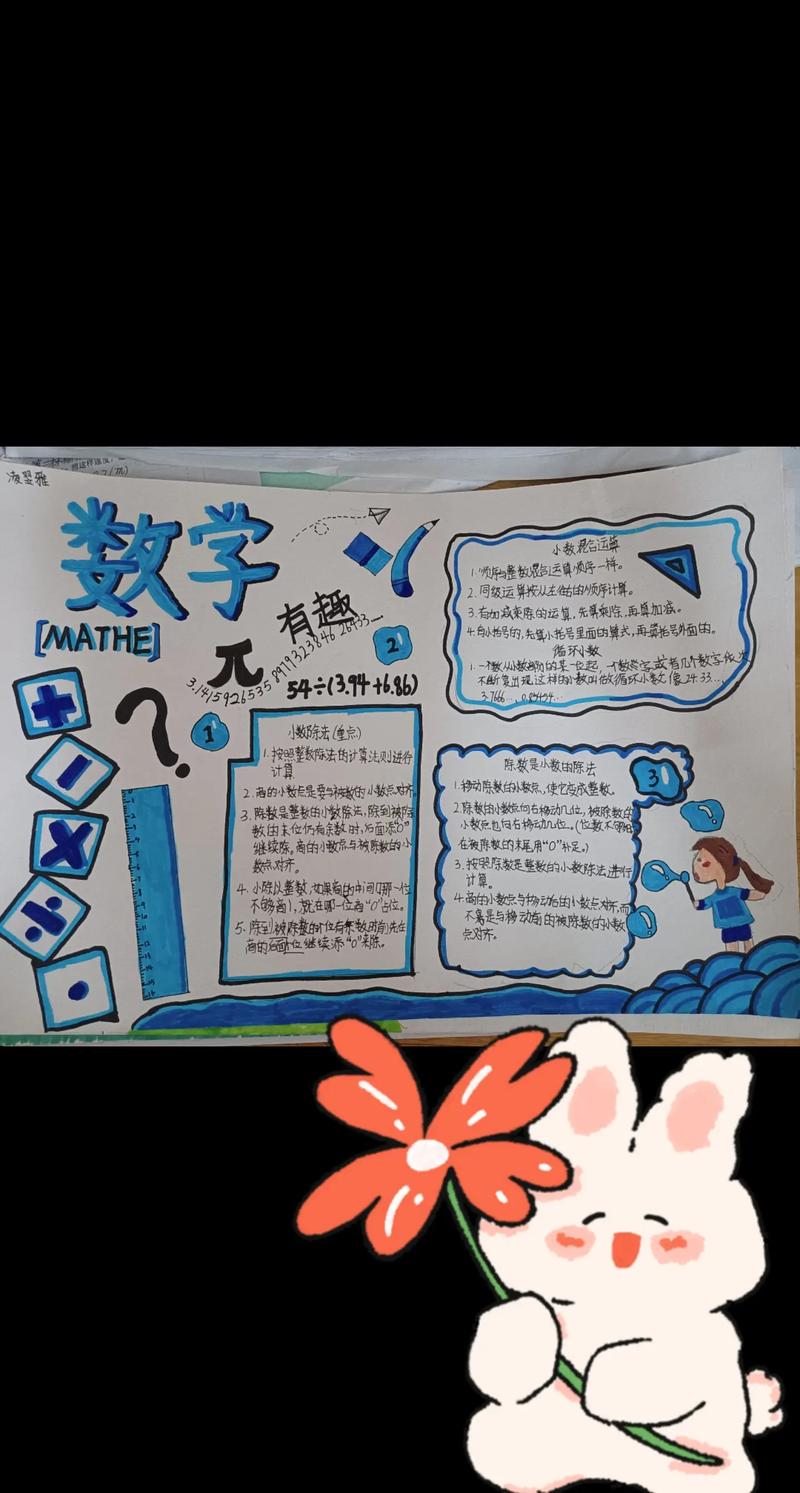 凌翌雅
数学
[MATHE]
有趣
π
3.1415926535 8979323846 26433...
54÷(3.94+6.86)
?
1
小数除法(重点)
1.按照整数除法的计算法则进行
计算
2.商的小数点是要与被数的小数点对齐
3.除数是整数的小数除法,除到被除
数的末位仍有余数时,后面添"0"
继续除。商的小数点与被除数的小
数点对齐。
4.小除以整数,如果商的中间哪一位
不够商1,就在哪一位商"0"占位。
5.除到被除数的个位有余数时,先在
商的右面点继续添"0"来除。
2
小数混合运算
1.顺序与整数混合运算顺序一样。
2.同级运算按从左往右的顺序计算。
3.有加减乘除的运算,先算乘除,再算加减。
4.有小括号的,先算小括号里面的算式,再算括号外面的。
循环小数
1.一个数从小数部分的某一位起,一个数字或者几个数字依次
不断重出现,这样的小数叫做循环小数,像24.33...,
3.7666...,
除数是小数的除法
3
1.移动除数的小数点,使它变成整数。
2.除数的小数点向右移动几位,被除数的
小数点也向右移动几位。(位数不够时
在被除数的末尾用"0"补足。)
3.按照除数是整数的小数除法进行
计算。
4.商的小数点与移动后的小数点对齐,而
不是与移动前的被除数的小数
点对齐。